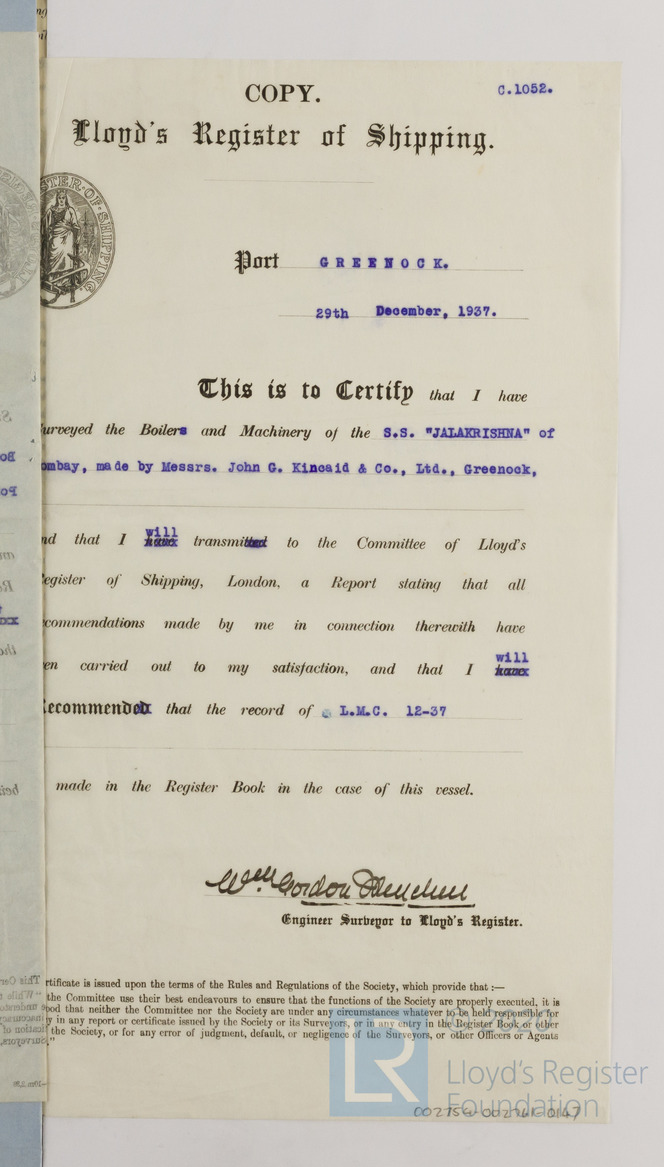 COPY.
C.1052.
Lloyd's Register of Shipping.
STER·OF·SHIPPING
Port GREENOCK.
29th December, 1937.
This is to Certify that I have
urveyed the Boilers and Machinery of the S.S. "JALAKRISHNA" of
ombay, made by Messrs. John G. Kincaid & Co., Ltd., Greenock,
will
nd that I have transmitted to the Committee of Lloyd's
egister of Shipping, London, a Report stating that all
commendations made by me in connection therewith have
will
en carried out to my satisfaction, and that I have
Recommended that the record of L.M.C. 12-37
made in the Register Book in the case of this vessel.
Wm. Gordon
Engineer Surveyor to Lloyd's Register.
rtificate is issued upon the terms of the Rules and Regulations of the Society, which provide that :—
the Committee use their best endeavours to ensure that the functions of the Society are properly executed, it is
ood that neither the Committee nor the Society are under any circumstances whatever to be held responsible for
y in any report or certificate issued by the Society or its Surveyors, or in any entry in the Register Book or other
the Society, or for any error of judgment, default, or negligence of the Surveyors, or other Officers or Agents
LR
Lloyd's Register
Foundation